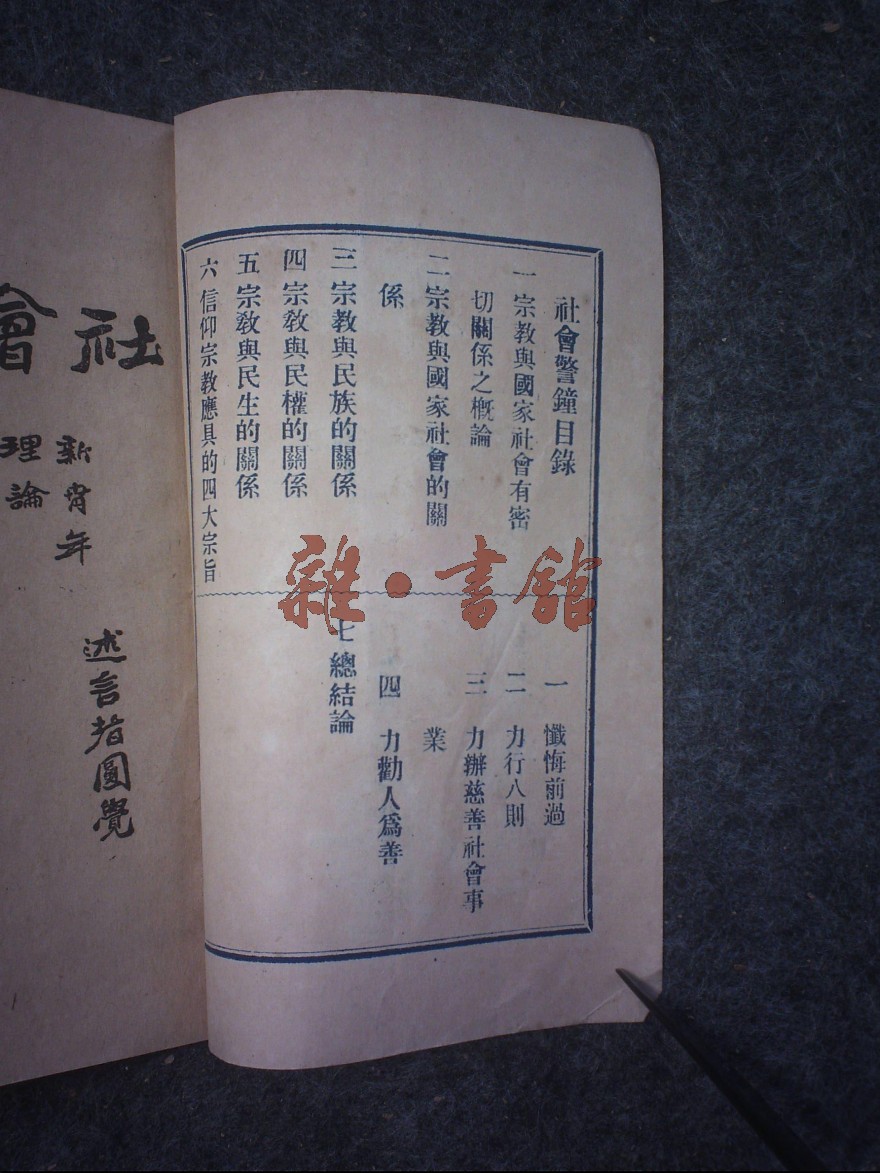 社會警鐘目錄
一 宗教與國家社會有密
切關係之概論
二 宗教與國家社會的關
係
三 宗教與民族的關係
四 宗教與民權的關係
五 宗教與民生的關係
六 信仰宗教應具的四大宗旨
一 懺悔前過
二 力行八則
三 力辦慈善社會事
業
四 力勸人爲善
七 總結論
雜·書館
社會
新青年
理論
述言者圓覺